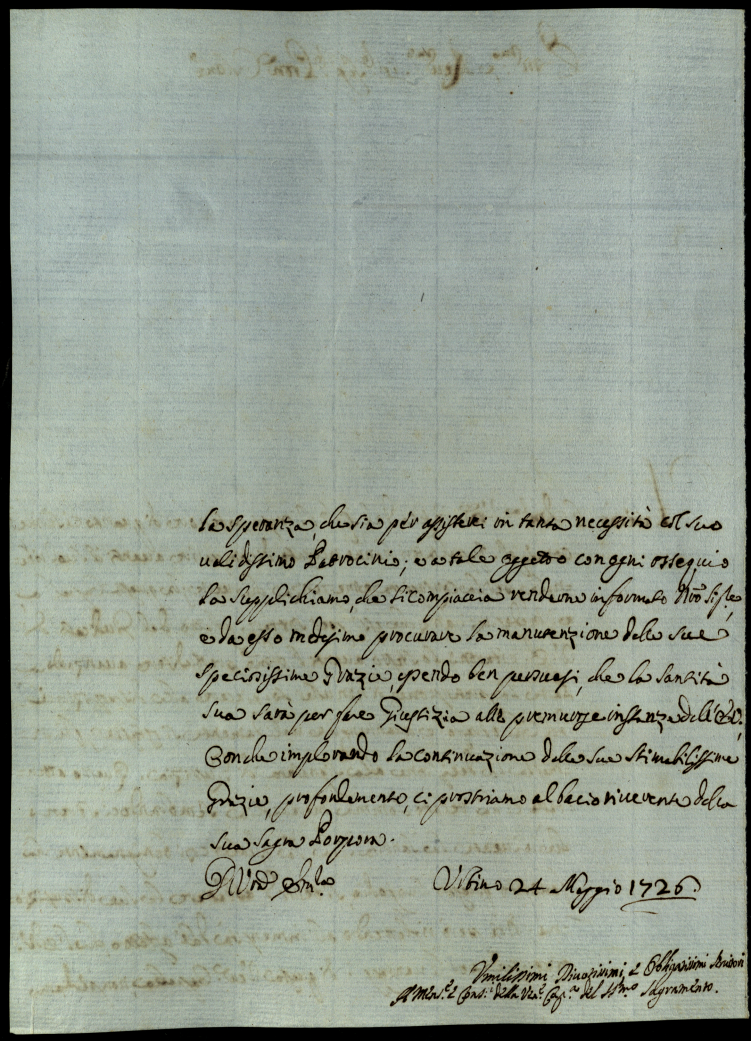 la speranza, che sia per assisterci in tanta necessità col suo
validissimo Patrocinio; e a tale oggetto con ogni ossequio
la supplichiamo, che si compiaccia renderne informato Nro Sigre,
e da esso medesimo procurare la manutenzione delle sue
speciosissime Grazie, essendo ben persuasi, che la Santità
sua sarà per fare Giustizia alle premurose instanze dell'E.V.
Con che implorando la continuazione delle sue stimabilissime
Grazie, profondamente, ci prostriamo al bacio riverente della
sua sagra Porpora.
Di Vrã Emza Vrbino 24 Maggio 1726.
Vmilissimi Divotissimi, e Obbligatissimi Servitori
e Consri della Vene Compa del SSmo Sagramento.